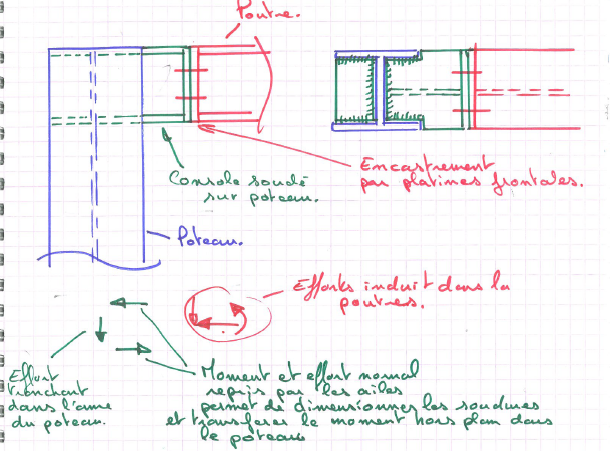 Poutre.
Encastrement
par platines frontales.
Console soudé
sur poteau.
Poteau.
Efforts induit dans la
poutres.
Effort
tranchant
dans l'ame
du poteau.
Moment et effort normal
repris par les ailes
permet de dimensionner les soudures
et transferer le moment hors plan dans
le poteau